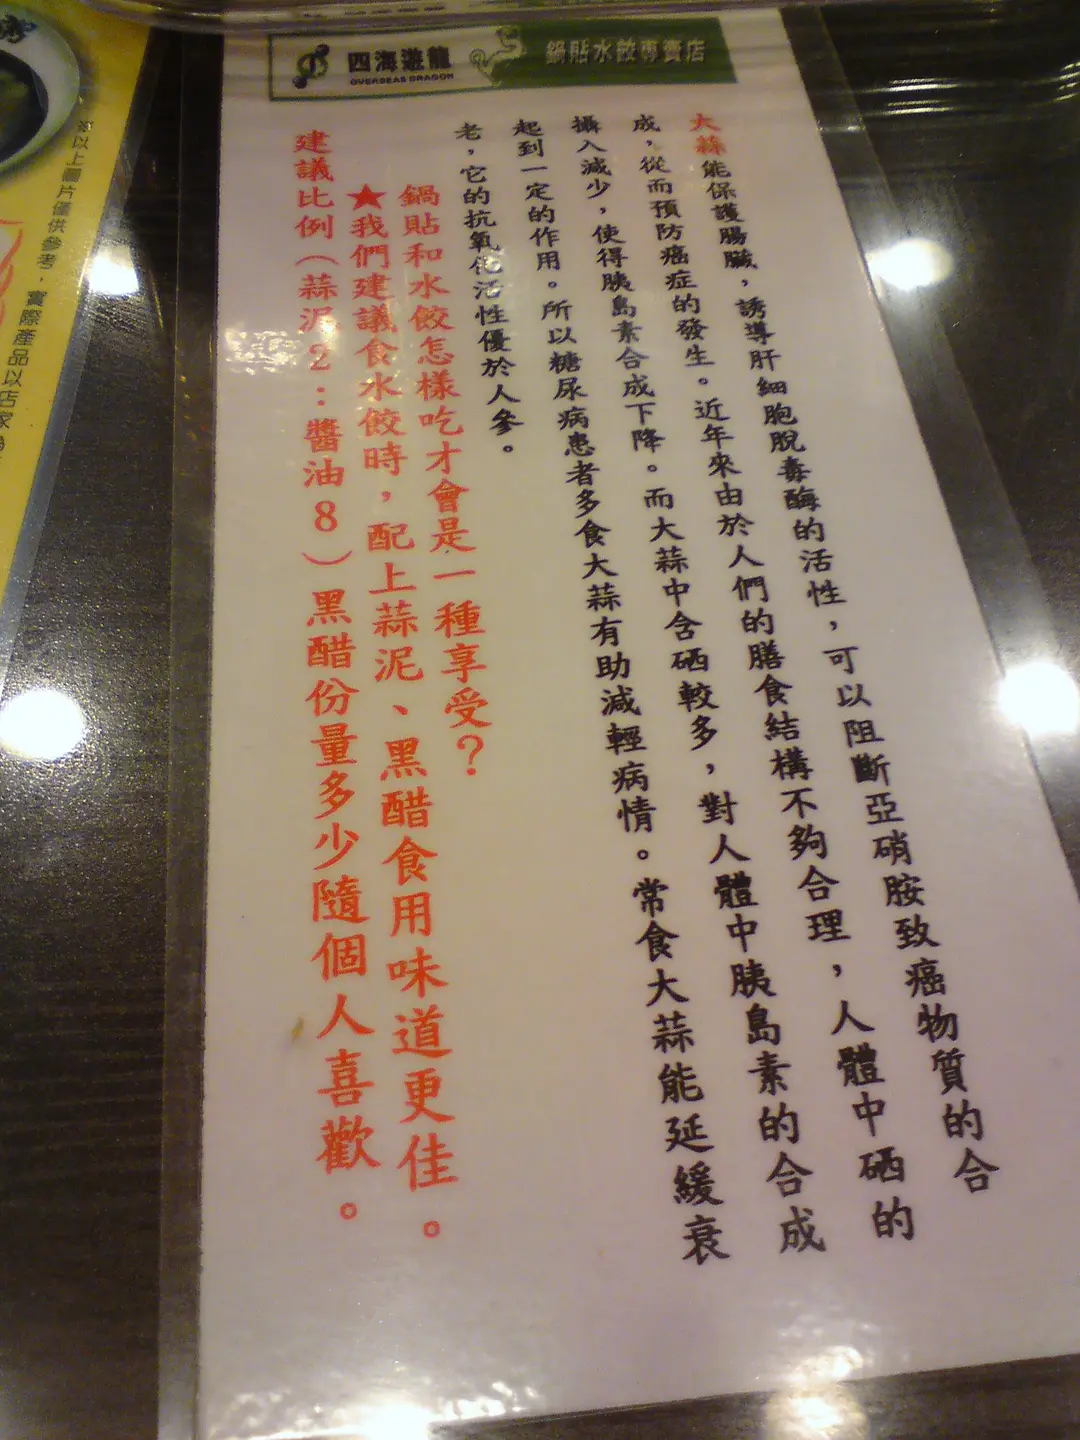 四海遊龍
OVERSEAS DRAGON
鍋貼水餃專賣店
大蒜能保護腸臟，誘導肝細胞脫毒酶的活性，可以阻斷亞硝胺致癌物質的合
成，從而預防癌症的發生。近年來由於人們的膳食結構不夠合理，人體中硒的
攝入減少，使得胰島素合成下降。而大蒜中含硒較多，對人體中胰島素的合成
起到一定的作用。所以糖尿病患者多食大蒜有助減輕病情。常食大蒜能延緩衰
老，它的抗氧化活性優於人參。
鍋貼和水餃怎樣吃才會是一種享受？
★我們建議食水餃時，配上蒜泥、黑醋食用味道更佳。
建議比例（蒜泥2：醬油8）黑醋份量多少隨個人喜歡。
以上圖片僅供參考，實際產品以店家